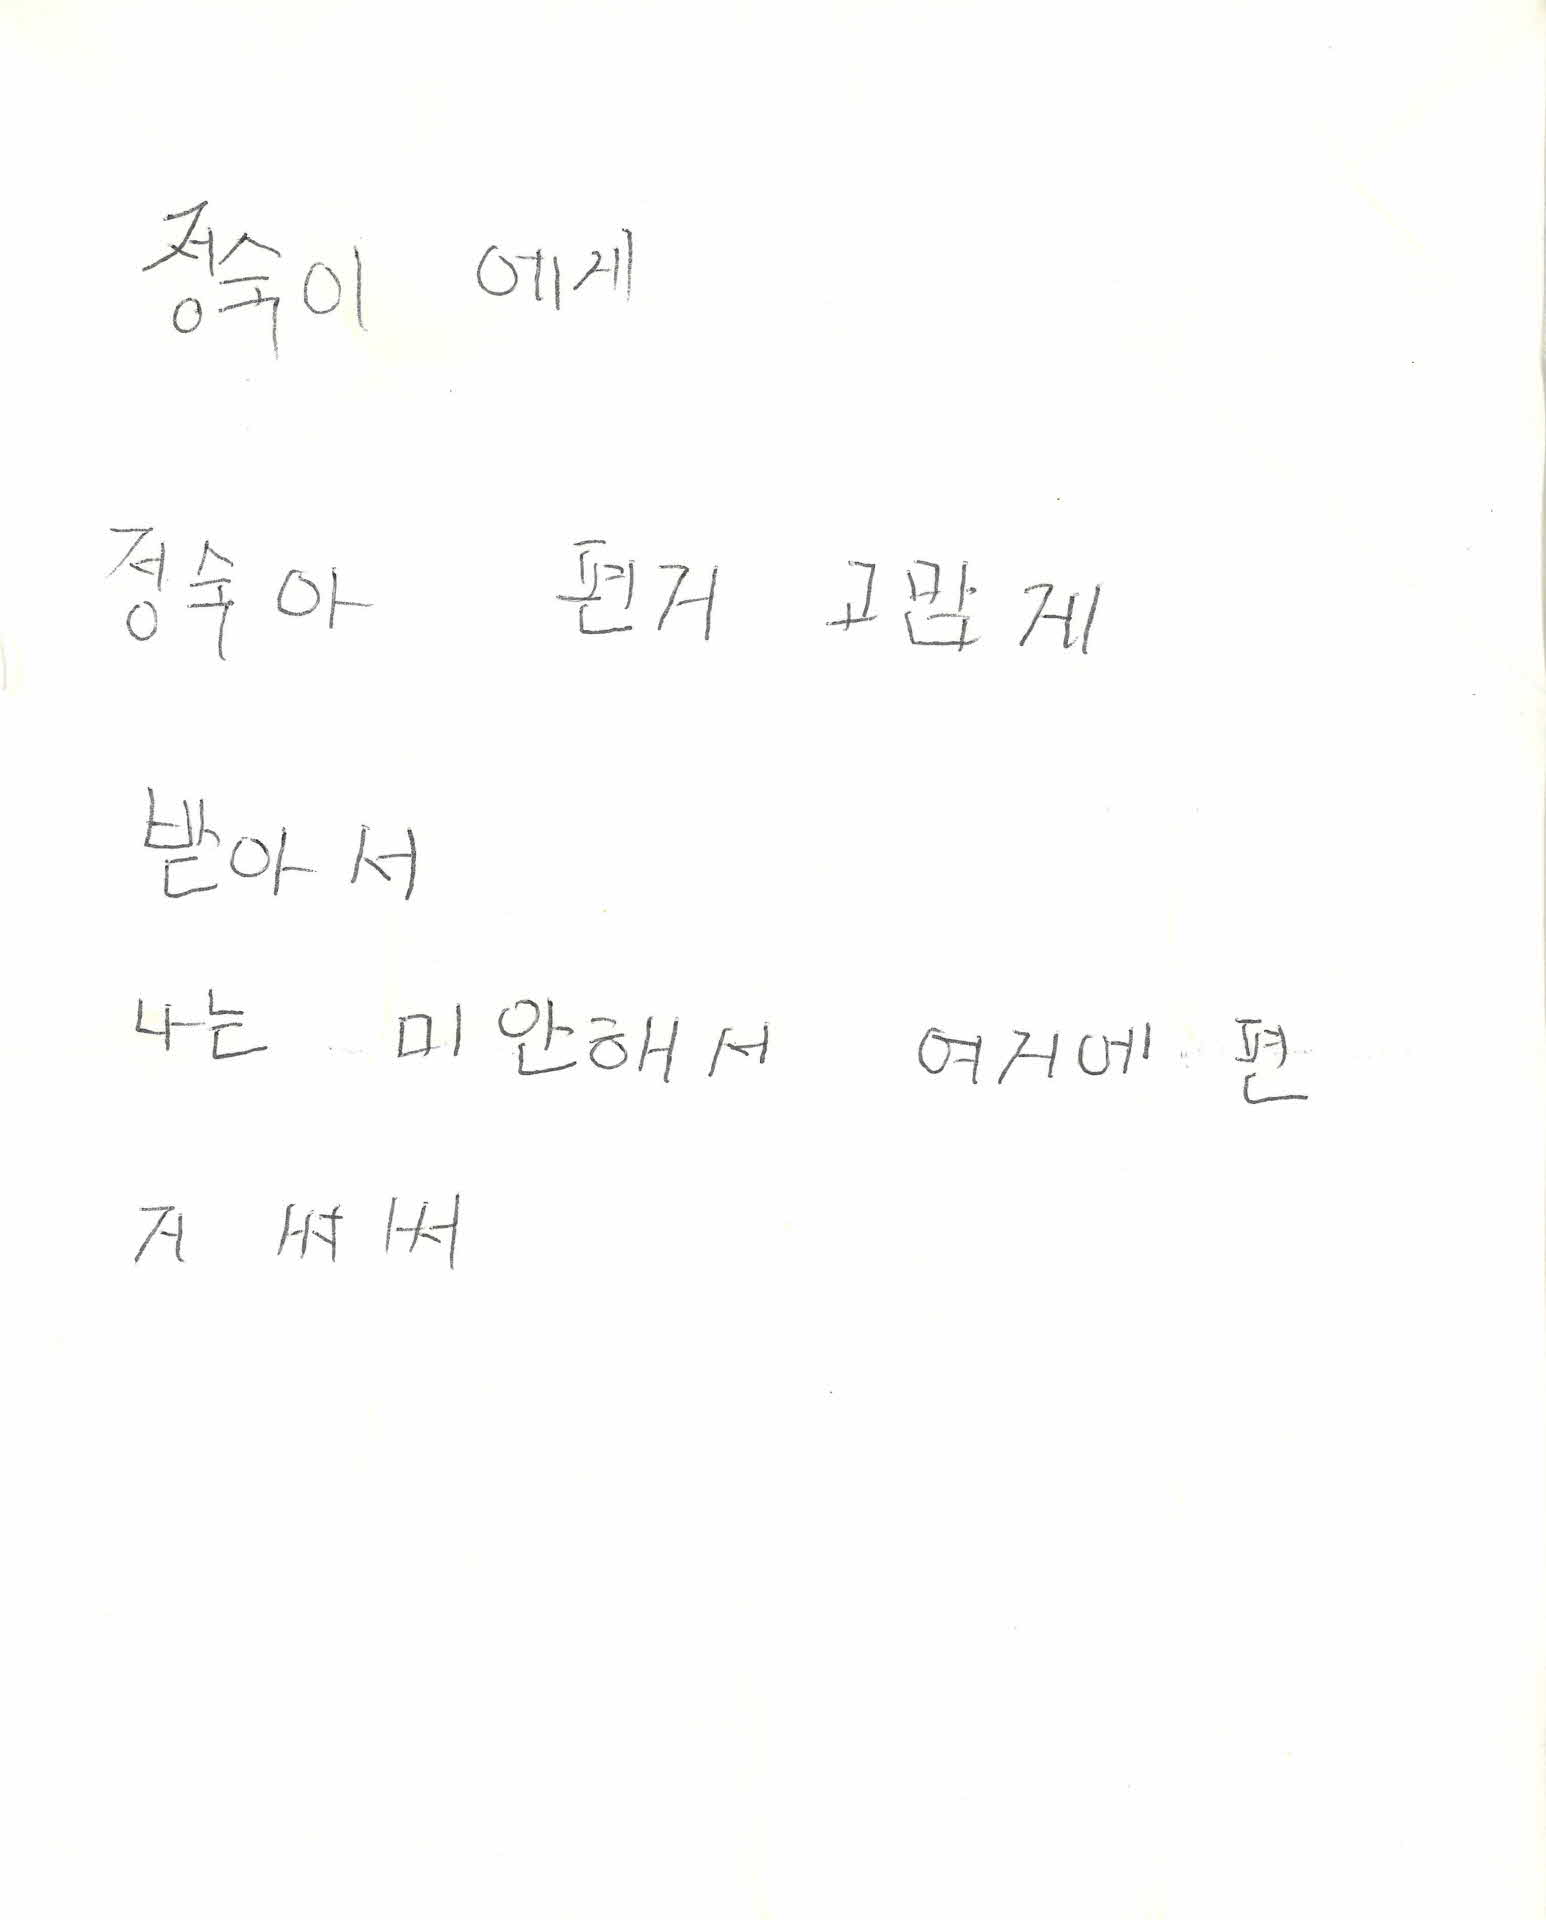 정숙이 에게
정숙아 편저 고맙게
받아서
나는 미안해서 여거에 편
저 써써